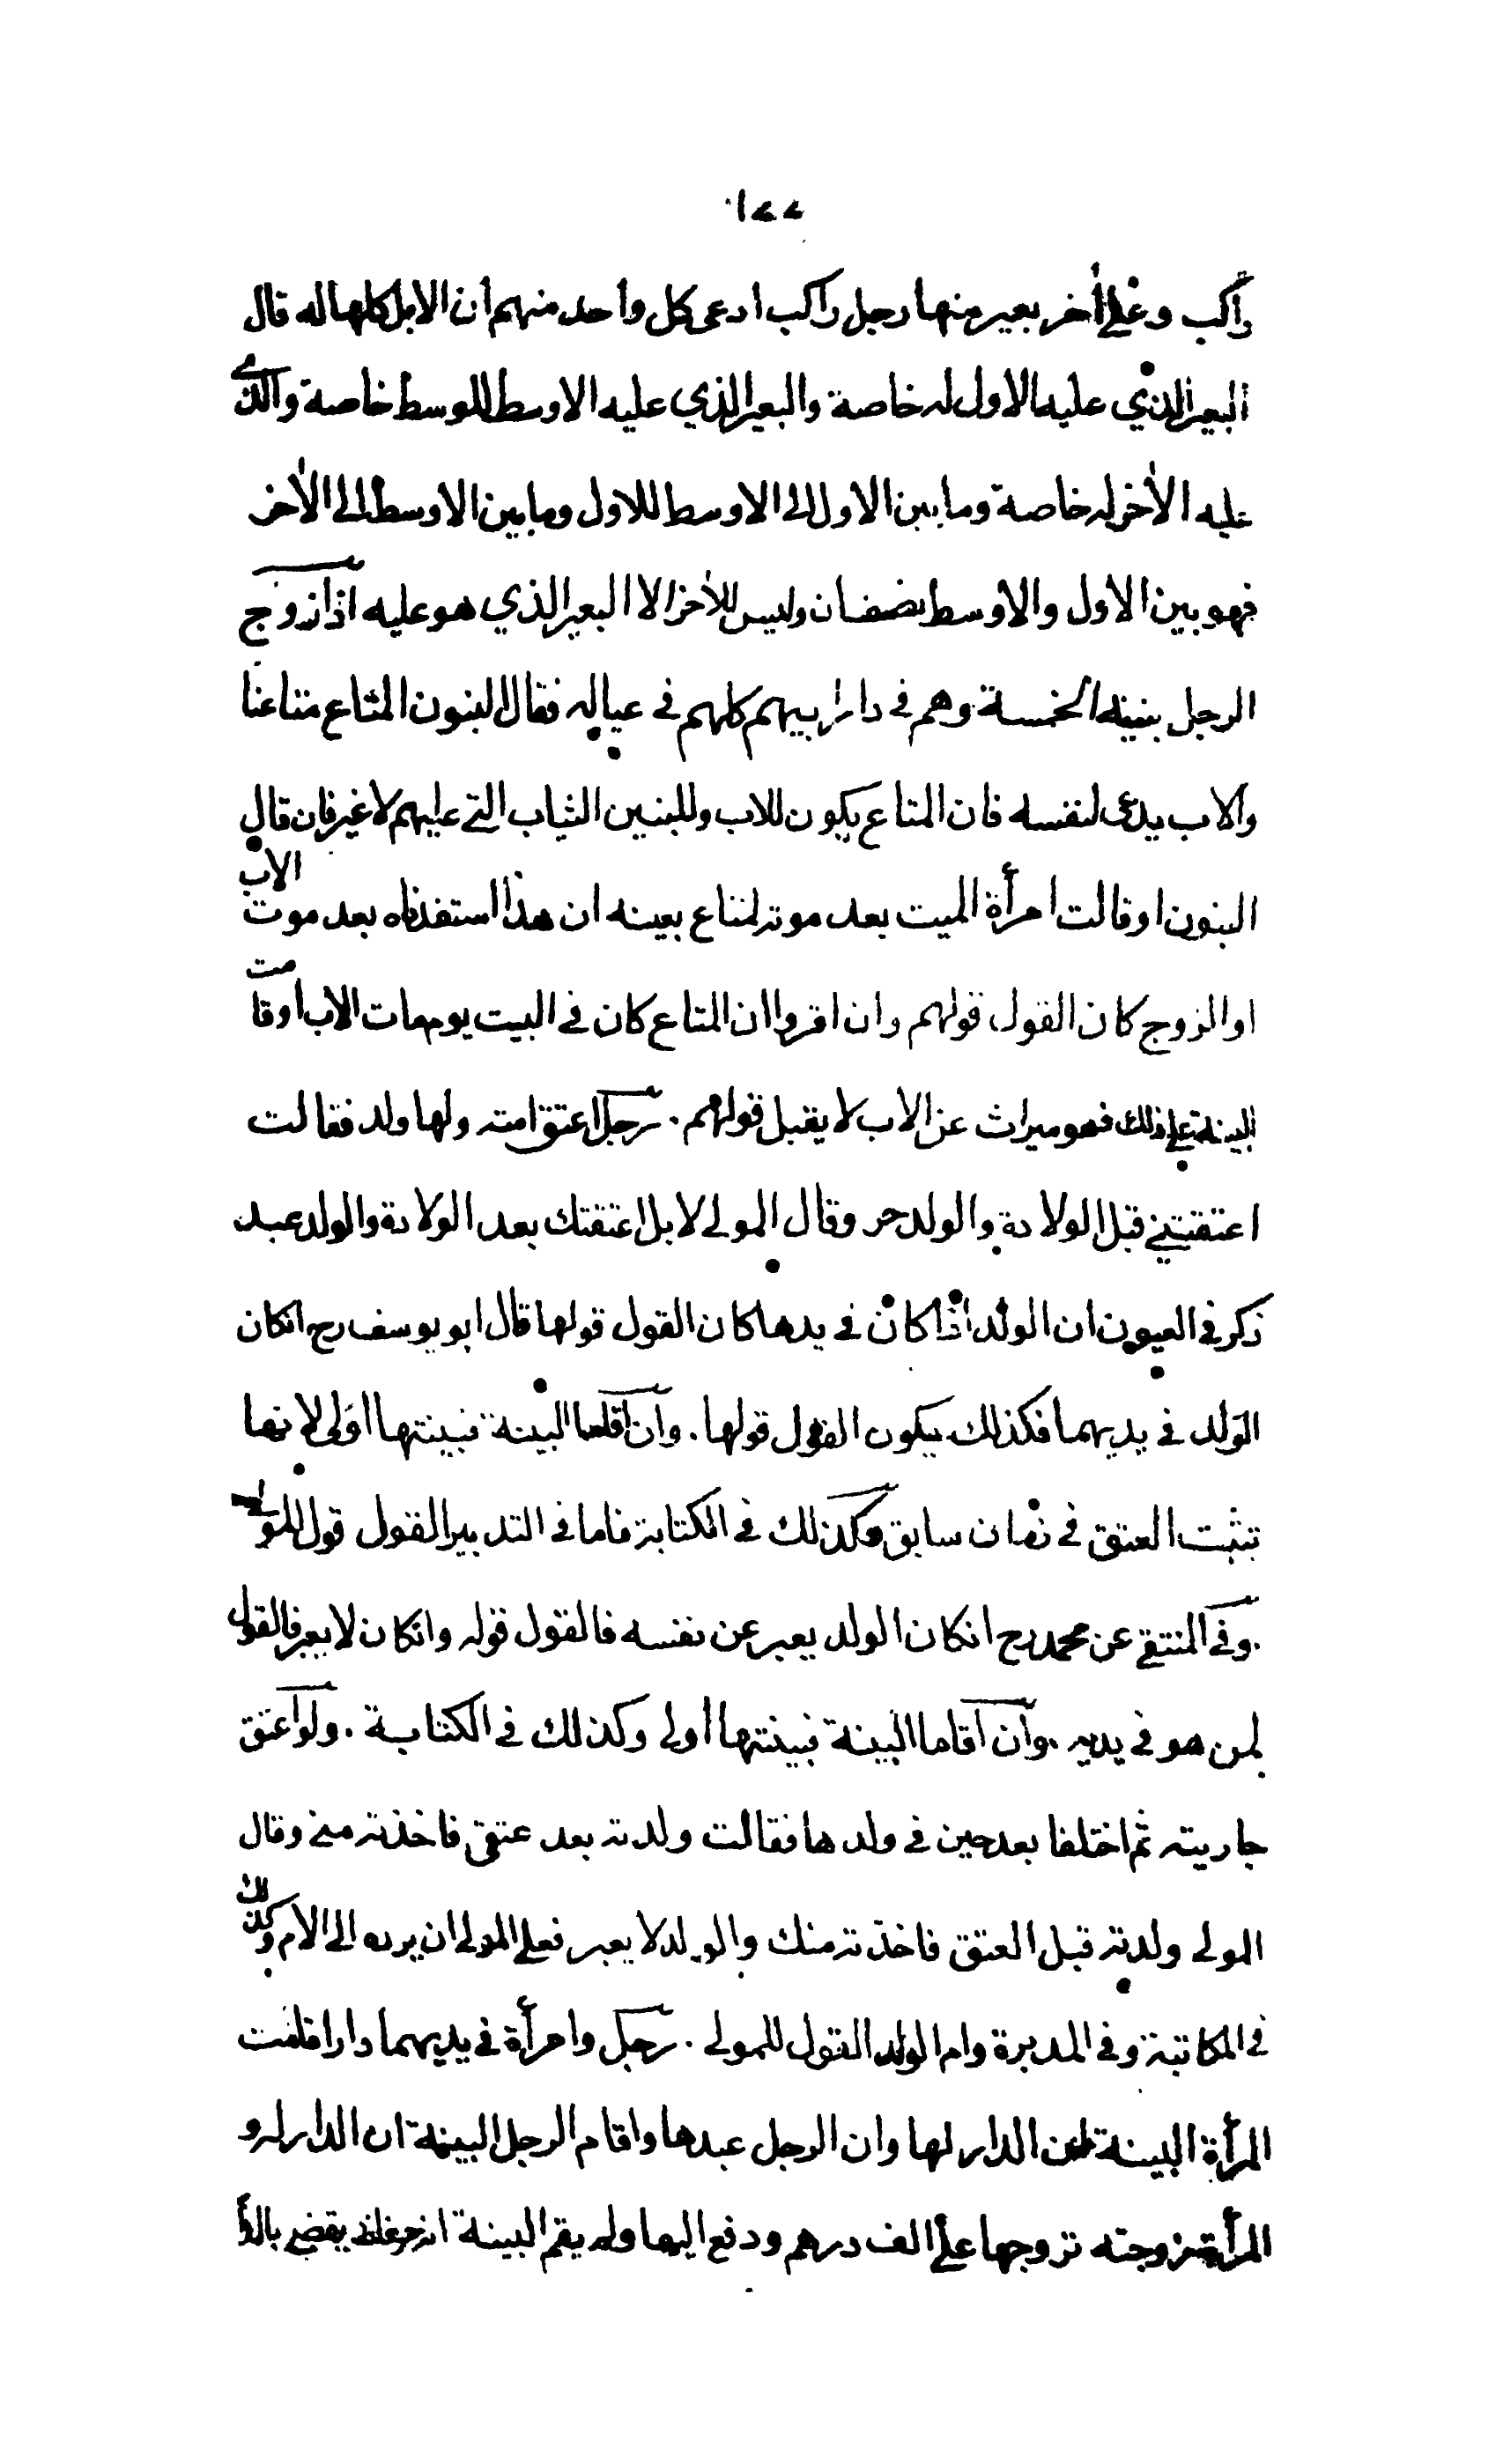 ١٢٢
راكب وعلى آخر بعير منها رجل راكب ادعى كل واحد منهم ان الابل كلها له قال
البعير الذي عليه الاول له خاصة والبعير الذي عليه الاوسط للوسط خاصة والذي
عليه الآخر له خاصة وما بين الاول الى الاوسط للاول وما بين الاوسط الى الآخر
فهو بين الاول والاوسط نصفان وليس للآخر الا البعير الذي هو عليه اذا زوج
الرجل بنيه الخمسة وهم في دار ابيهم كلهم في عياله فقال البنون المتاع متاعنا
والاب يدعى لنفسه فان المتاع يكون للاب وللبنين الثياب التي عليهم لا غير فان قال
البنون او قالت امرأة الميت بعد موته لمتاع بعينه ان هذا استفدناه بعد موت الاب
او الزوج كان القول قولهم وان اقروا ان المتاع كان في البيت يوم مات الاب او قامت
البينة على ذلك فهو ميراث عن الاب لا يقبل قولهم . رجل اعتق امته ولها ولد فقالت
اعتقتني قبل الولادة والولد حر وقال المولى لا بل اعتقتك بعد الولادة والولد عبد
ذكر في العيون ان الولد اذا كان في يدها كان القول قولها قال ابو يوسف رح انكان
الولد في يديهما فكذلك يكون القول قولها . وان اقاما البينة فبينتها اولى لانها
تثبت العتق في زمان سابق وكذلك في الكتابة فاما في التدبير القول قول المولى
وفي المنتقى عن محمد رح انكان الولد يعبر عن نفسه فالقول قوله وانكان لا يعبر فالقول
لمن هو في يديه . وان اقاما البينة فبينتها اولى وكذلك في الكتابة . ولو اعتق
جاريته ثم اختلفا بعد حين في ولدها فقالت ولدته بعد عتقي فاخذته مني وقال
المولى ولدته قبل العتق فاخذته منك والولد لا يعبر فعلى المولى ان يرده الى الام وكذلك
في المكاتبة وفي المدبرة وام الولد القول للمولى . رجل وامرأة في يديهما دار اقامت
المرأة البينة ان الدار لها وان الرجل عبدها واقام الرجل البينة ان الدار له و
المرأة زوجته تزوجها على الف درهم ودفع اليها ولم يقم البينة انه حر فانه يقضى بالدار